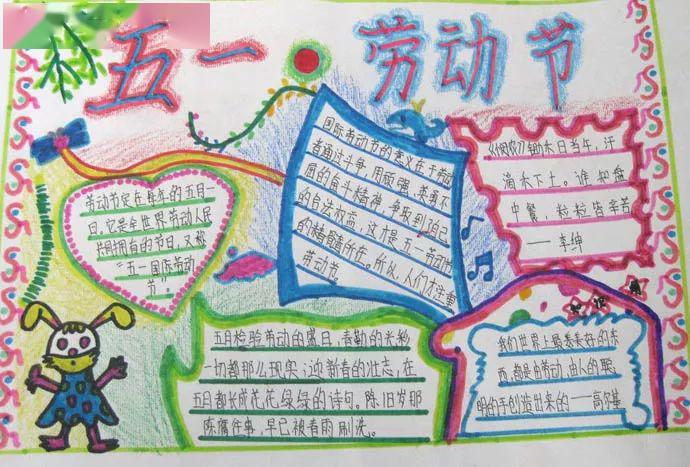 五一 劳动节
劳动节定在每年的五月一
日,它是全世界劳动人民
共同拥有的节日,又称
“五一国际劳动
节”。
国际劳动节的意义在于劳动
者通过斗争,用顽强、英勇不
屈的奋斗精神,争取到自己
的合法权益,这才是五一劳动节
的精髓所在。所以,人们才注重
劳动节
《悯农》锄禾日当午,汗
滴禾下土。谁知盘
中餐,粒粒皆辛苦
——李绅
五月检验劳动的盛日,春勤的光彩
一切都那么现实;迎新春的壮志,在
五月都长成花花绿绿的诗句。陈旧岁那
陈腐往事,早已被春雨刷洗。
我们世界上最美好的东
西,都是由劳动、由人的聪
明的手创造出来的——高尔基